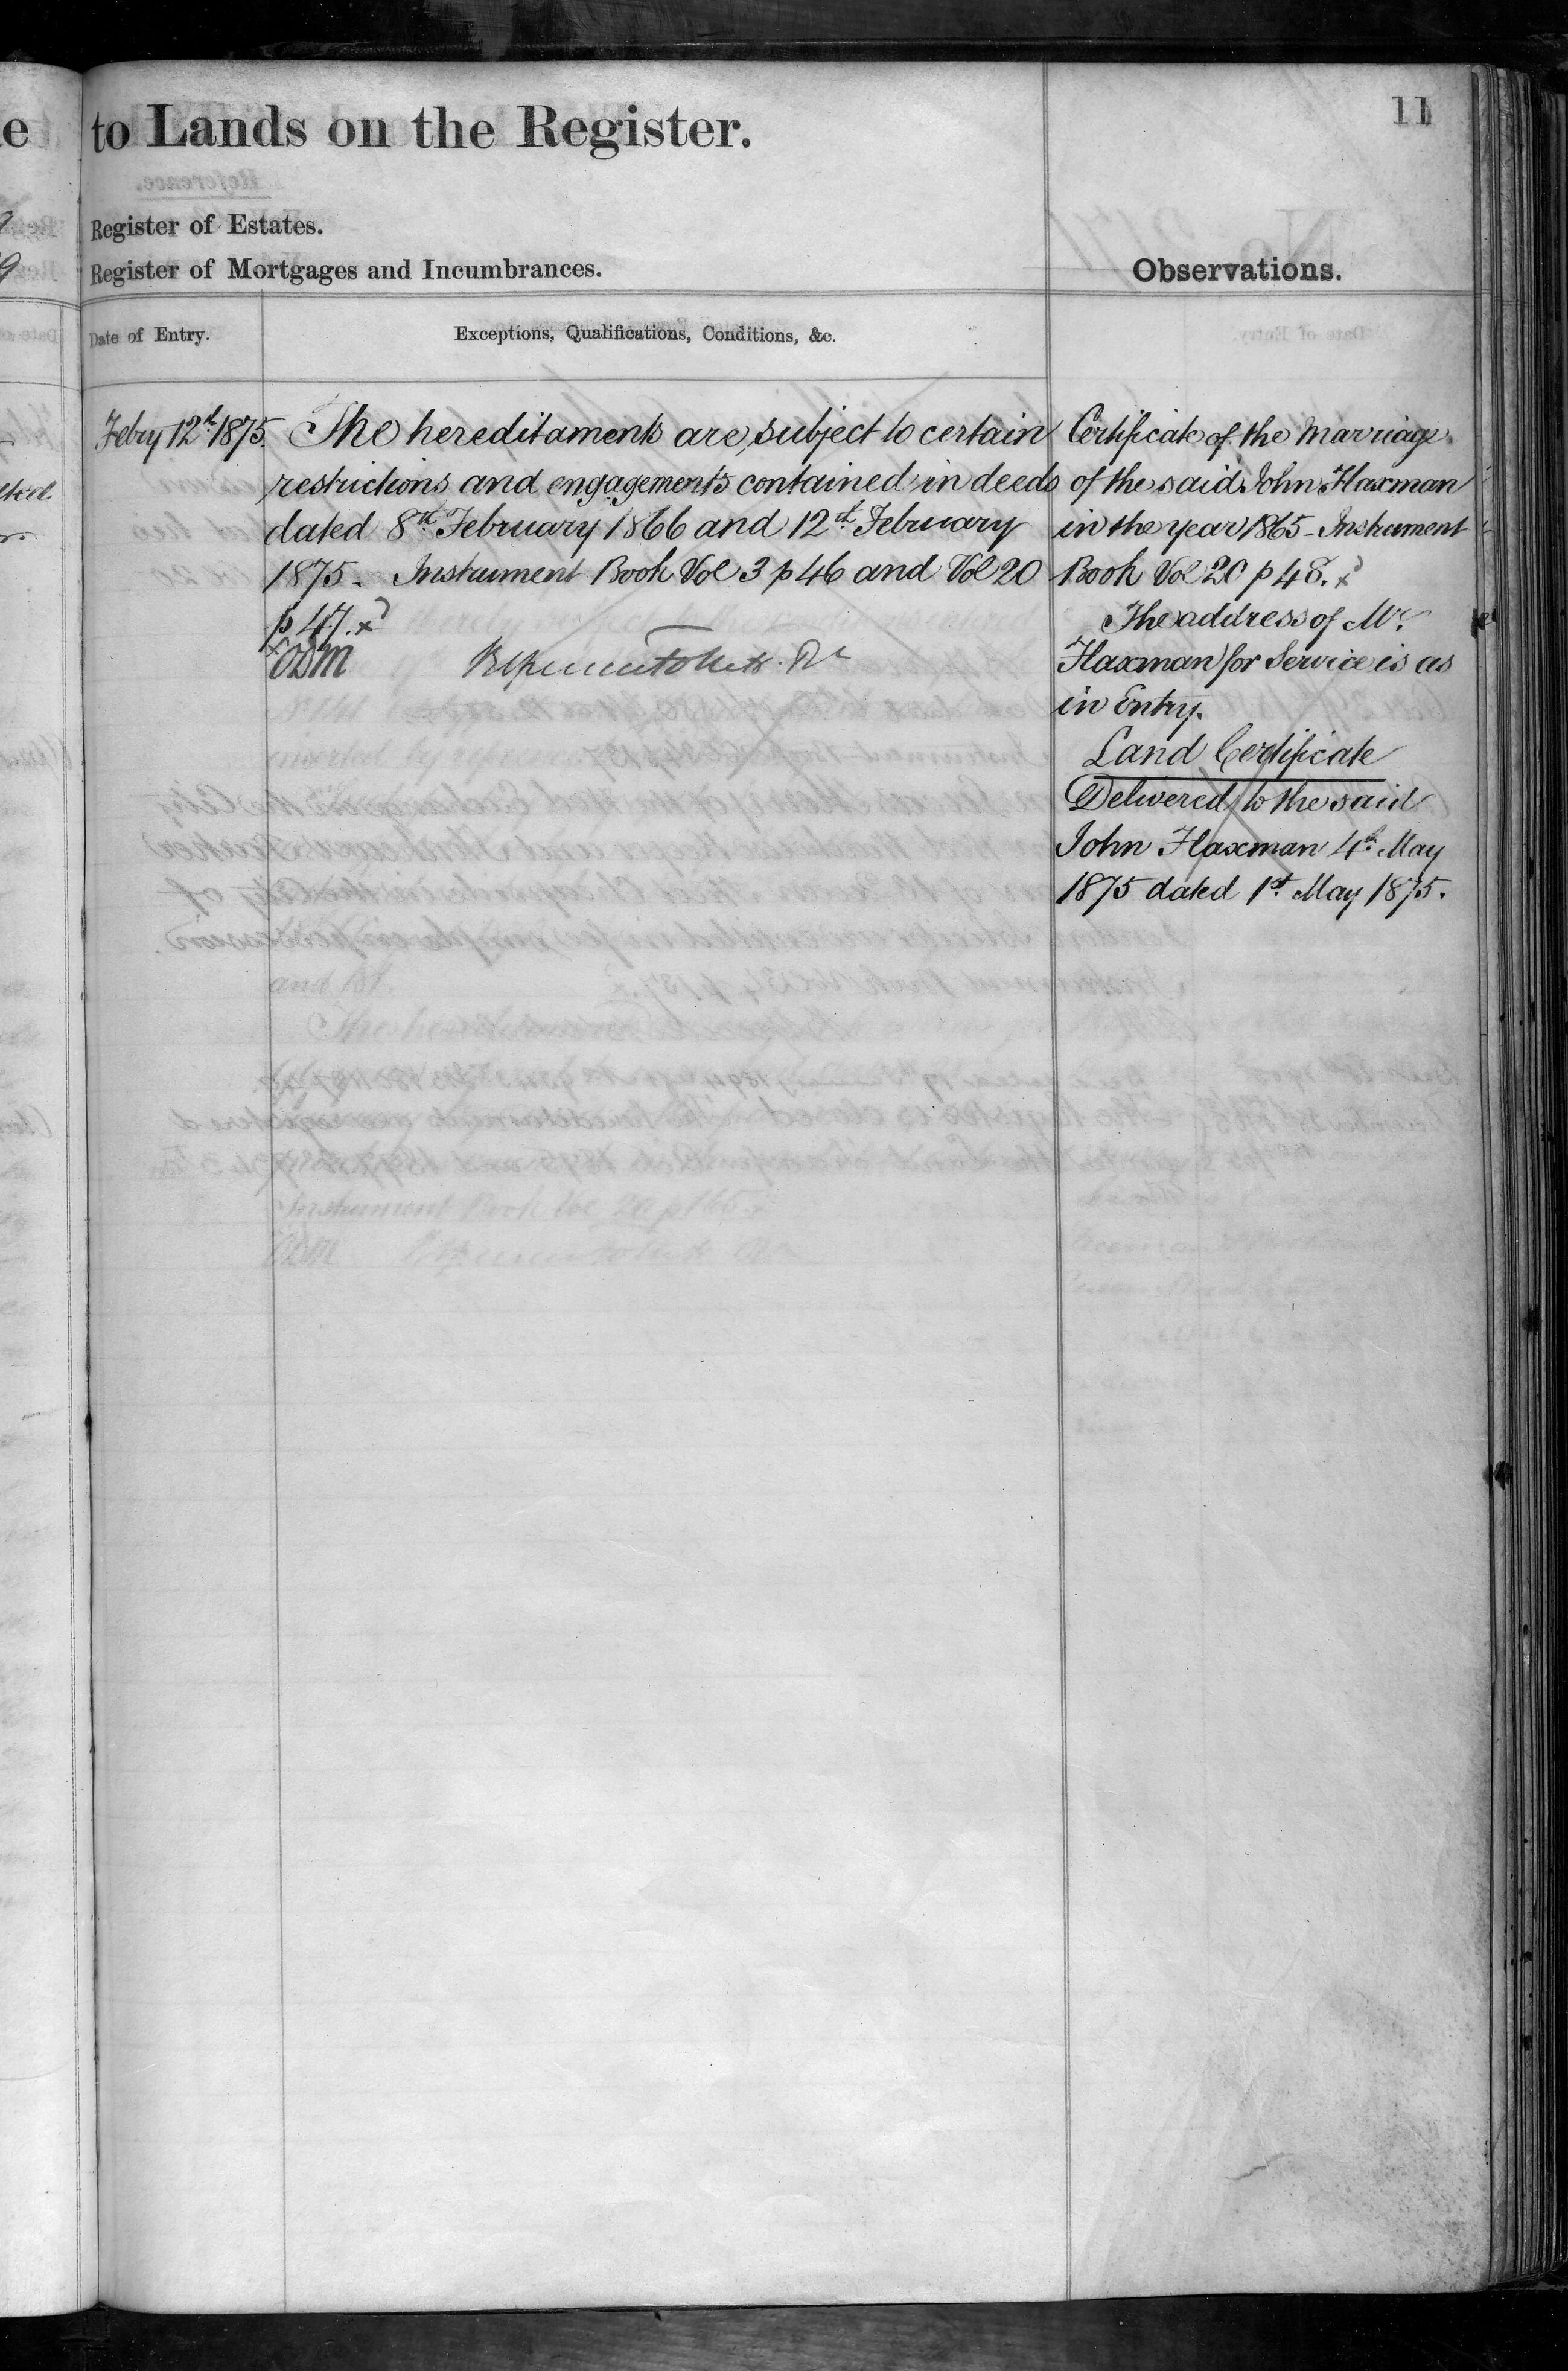 11
to Lands on the Register.
Register of Estates.
Register of Mortgages and Incumbrances.
Observations.
Date of Entry.
Exceptions, Qualifications, Conditions, &c.
Febry 12th 1875.
The hereditaments are subject to certain
restrictions and engagements contained in deeds
dated 8th February 1866 and 12th February
1875. Instrument Book Vol 3 p 46 and Vol 20
p 47. x
Certificate of the Marriage
of the said John Flaxman
in the year 1865 - Instrument
Book Vol 20 p 48. x
The address of Mr.
Flaxman for Service is as
in Entry.
Land Certificate
Delivered to the said
John Flaxman 4th May
1875 dated 1st May 1875.